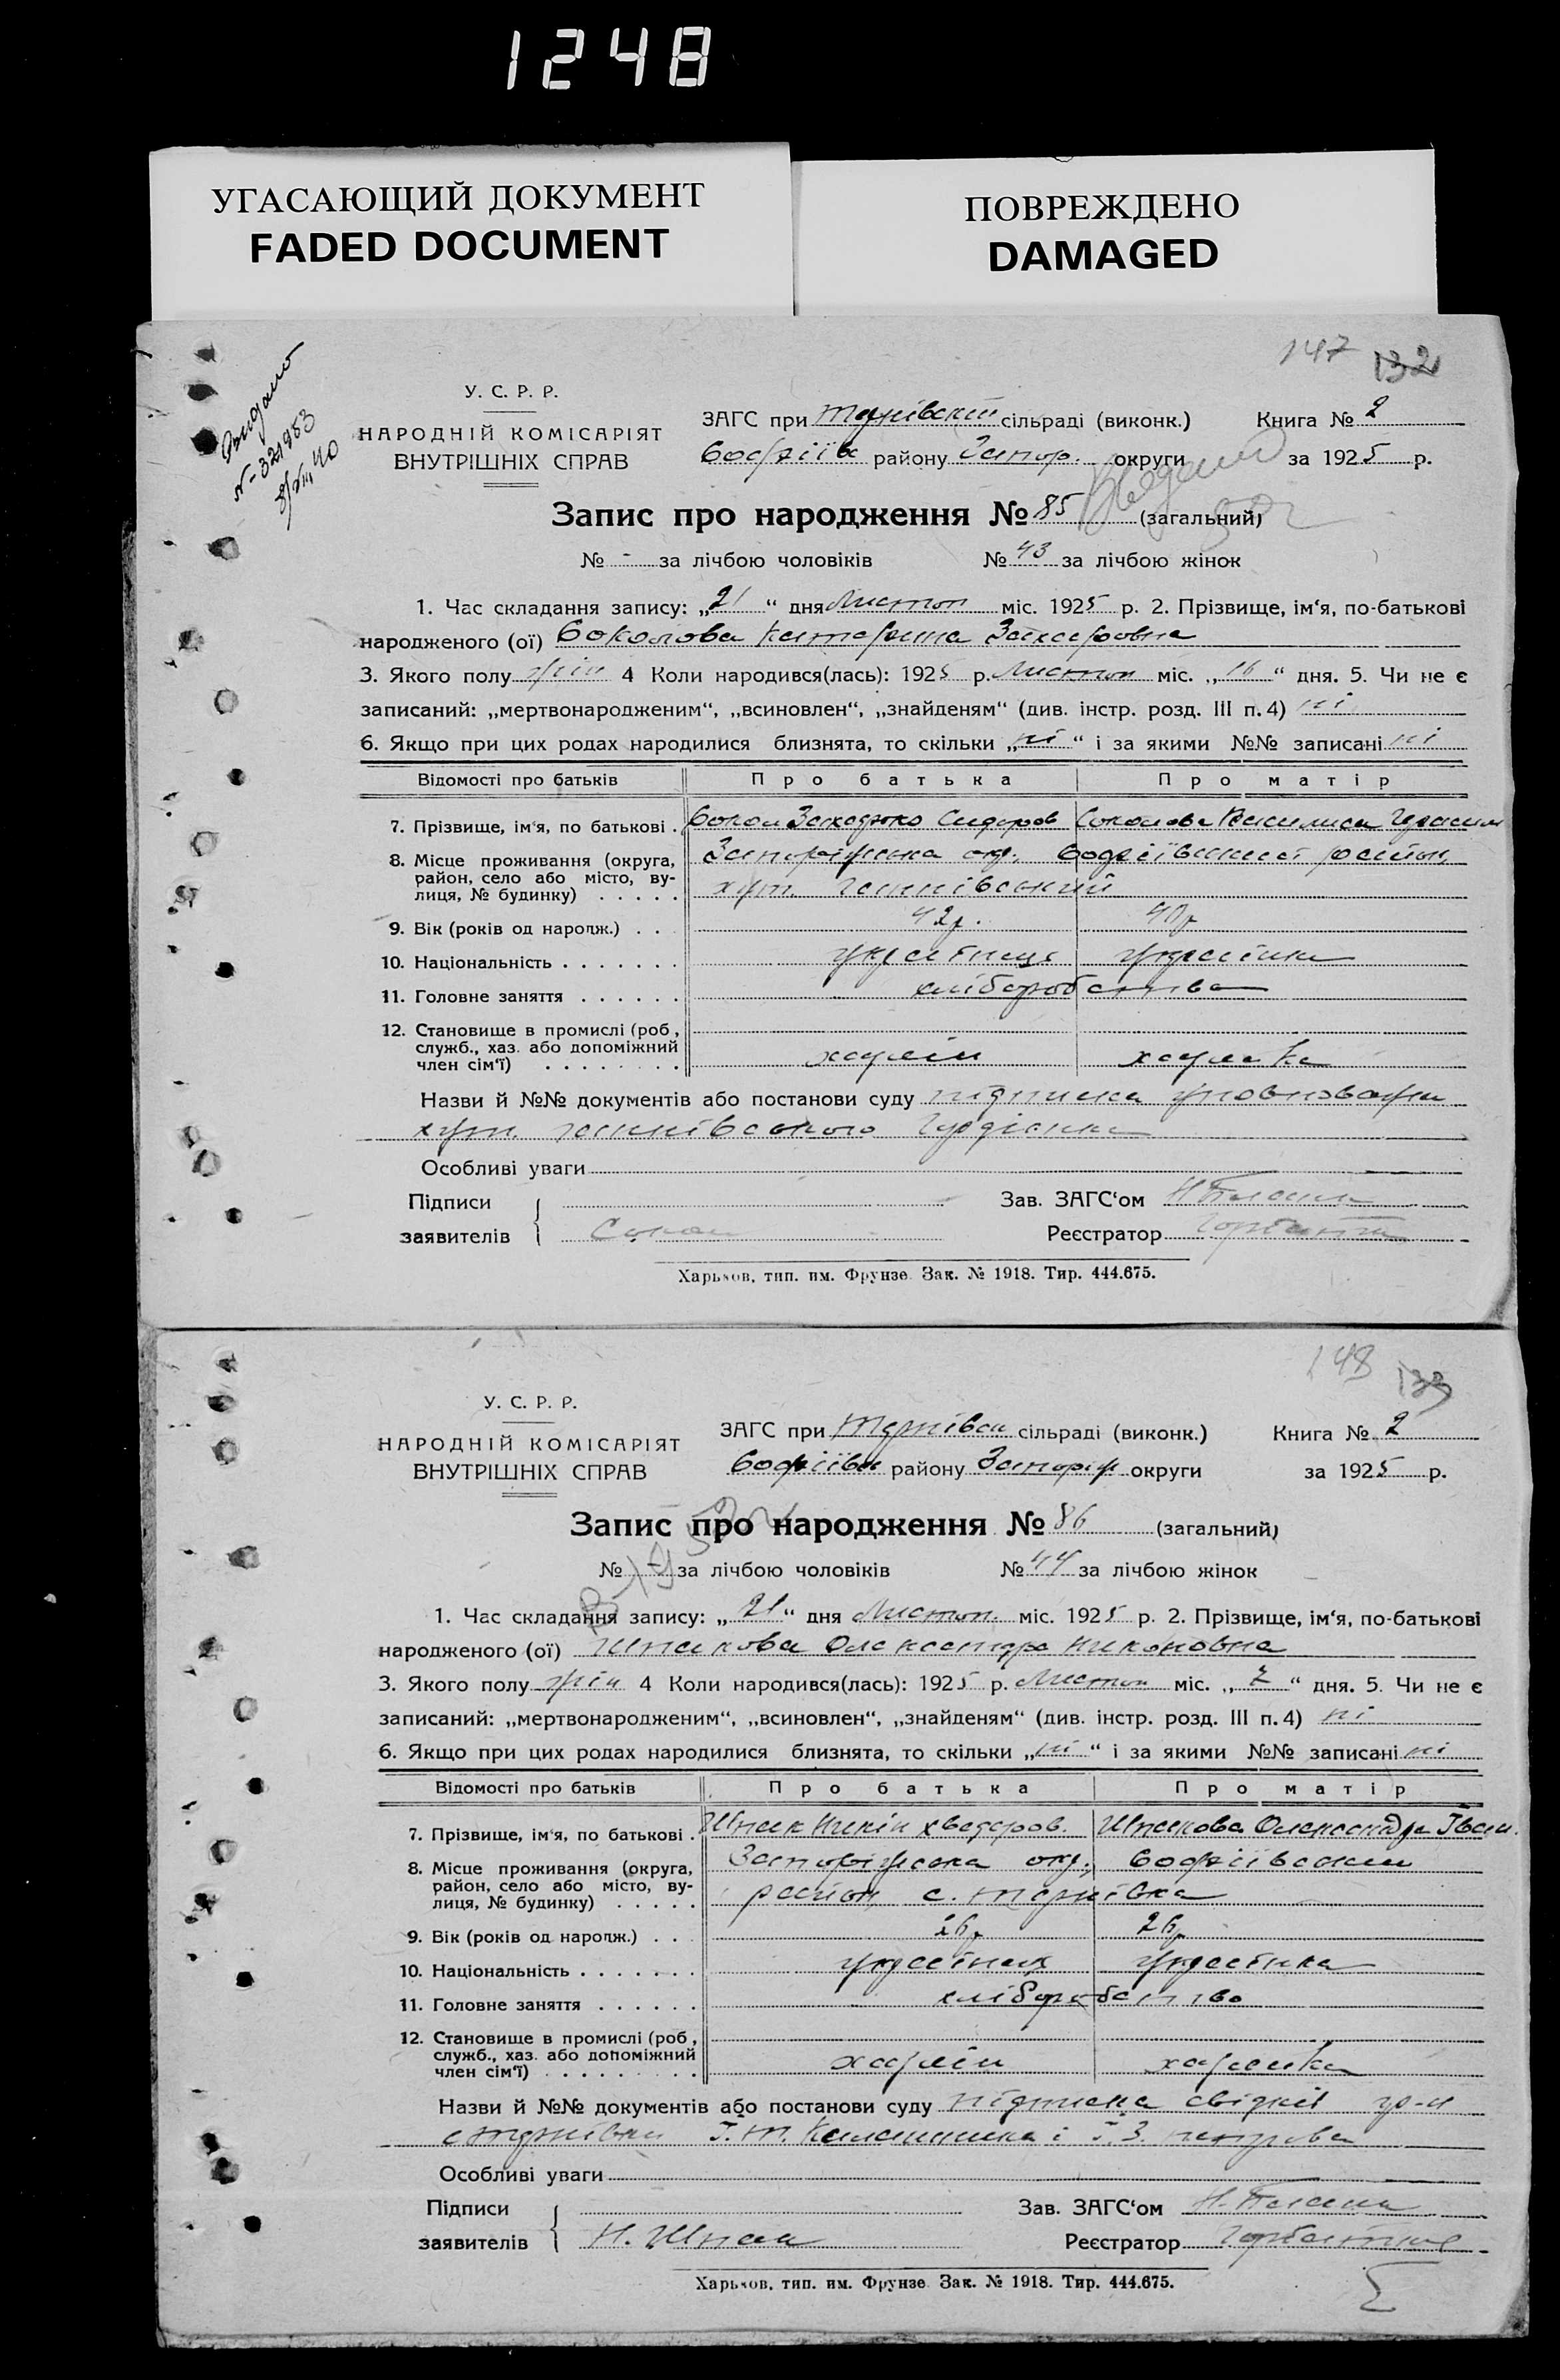 1248
УГАСАЮЩИЙ ДОКУМЕНТ
FADED DOCUMENT
ПОВРЕЖДЕНО
DAMAGED
147 132
Видано
У. С. Р. Р.
НАРОДНІЙ КОМІСАРІЯТ
ВНУТРІШНІХ СПРАВ
ЗАГС при сільраді (виконк.) Книга № 2
району Запор. округи за 1925 р.
Запис про народження № 85 (загальний)
№ - за лічбою чоловіків № 43 за лічбою жінок
1. Час складання запису: „21“ дня Листоп міс. 1925 р. 2. Прізвище, ім‘я, по-батькові
народженого (ої) Соколова Катерина Захаровна
3. Якого полу жін 4 Коли народився(лась): 1925 р. Листоп міс. „16“ дня. 5. Чи не є
записаний: „мертвонародженим“, „всиновлен“, „знайденям“ (див. інстр. розд. III п. 4) ні
6. Якщо при цих родах народилися близнята, то скільки „ні“ і за якими №№ записані ні
Відомості про батьків Про батька Про матір
7. Прізвище, ім‘я, по батькові . Сокол Сидоров Соколова Василиса
8. Місце проживання (округа, район, село або місто, вулиця, № будинку) . . . . . Запоріжська окр. район,
хут.
9. Вік (років од народж.) . . 42р. 40р
10. Національність . . . . . . . українець українка
11. Головне заняття . . . . . . хліборобства
12. Становище в промислі (роб., служб., хаз. або допоміжний член сім‘ї) . . . . . . . . хазяїн хазяйка
Назви й №№ документів або постанови суду підписка
хут.
Особливі уваги
Підписи
заявителів Сокол
Зав. ЗАГС‘ом
Реєстратор
Харьков, тип. им. Фрунзе. Зак. № 1918. Тир. 444.675.
148 133
У. С. Р. Р.
НАРОДНІЙ КОМІСАРІЯТ
ВНУТРІШНІХ СПРАВ
ЗАГС при Тернівск сільраді (виконк.) Книга № 2
району Запоріж округи за 1925 р.
Запис про народження № 86 (загальний)
№ - за лічбою чоловіків № 44 за лічбою жінок
1. Час складання запису: „21“ дня Листоп. міс. 1925 р. 2. Прізвище, ім‘я, по-батькові
народженого (ої) Шпакова Олександра Никоновна
3. Якого полу жін 4 Коли народився(лась): 1925 р. Листоп міс. „7“ дня. 5. Чи не є
записаний: „мертвонародженим“, „всиновлен“, „знайденям“ (див. інстр. розд. III п. 4) ні
6. Якщо при цих родах народилися близнята, то скільки „ні“ і за якими №№ записані ні
Відомості про батьків Про батька Про матір
7. Прізвище, ім‘я, по батькові . Шпак Никін Хведоров. Шпакова Олександра Іван.
8. Місце проживання (округа, район, село або місто, вулиця, № будинку) . . . . . Запоріжська окр.,
район, с. Тернівка
9. Вік (років од народж.) . . 26р 26р
10. Національність . . . . . . . українець українка
11. Головне заняття . . . . . . хліборобство
12. Становище в промислі (роб., служб., хаз. або допоміжний член сім‘ї) . . . . . . . . хазяїн хазяйка
Назви й №№ документів або постанови суду підписка свідків гр-н
с Тернівки Калашника і
Особливі уваги
Підписи
заявителів Н. Шпак
Зав. ЗАГС‘ом
Реєстратор
Харьков, тип. им. Фрунзе. Зак. № 1918. Тир. 444.675.